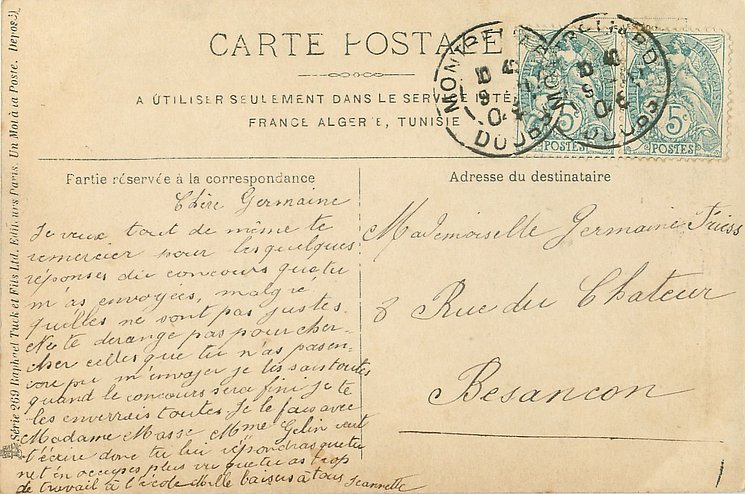 CARTE POSTALE
A UTILISER SEULEMENT DANS LE SERVICE INTÉ
FRANCE ALGERIE, TUNISIE
MONTBELIARD
DOUBS
5c
POSTES
5c
POSTES
Partie réservée à la correspondance
Adresse du destinataire
Chère Germaine
Je veux tout de même te
remercier pour les quelques
réponses du concours que tu
m'as envoyées, malgré
qu'elles ne sont pas justes.
Ne te derange pas pour cher-
cher celles que tu n'as pas en-
core pu m'envoyer je les sais toutes
quand le concours sera fini je te
les enverrais toutes Je le fais avec
Madame Masse Mme Gelin veut
t'écrire donc tu lui répondras que tu
net'en occupes plus vu que tu as trop
de travail à l'école Mille baisers à tous Jeannette
Mademoiselle Germaine Friess
8 Rue du Chateur
Besançon
Série 269 Raphael Tuck et Fils Ltd, Editeurs Paris. Un Mot à la Poste. (Déposé)